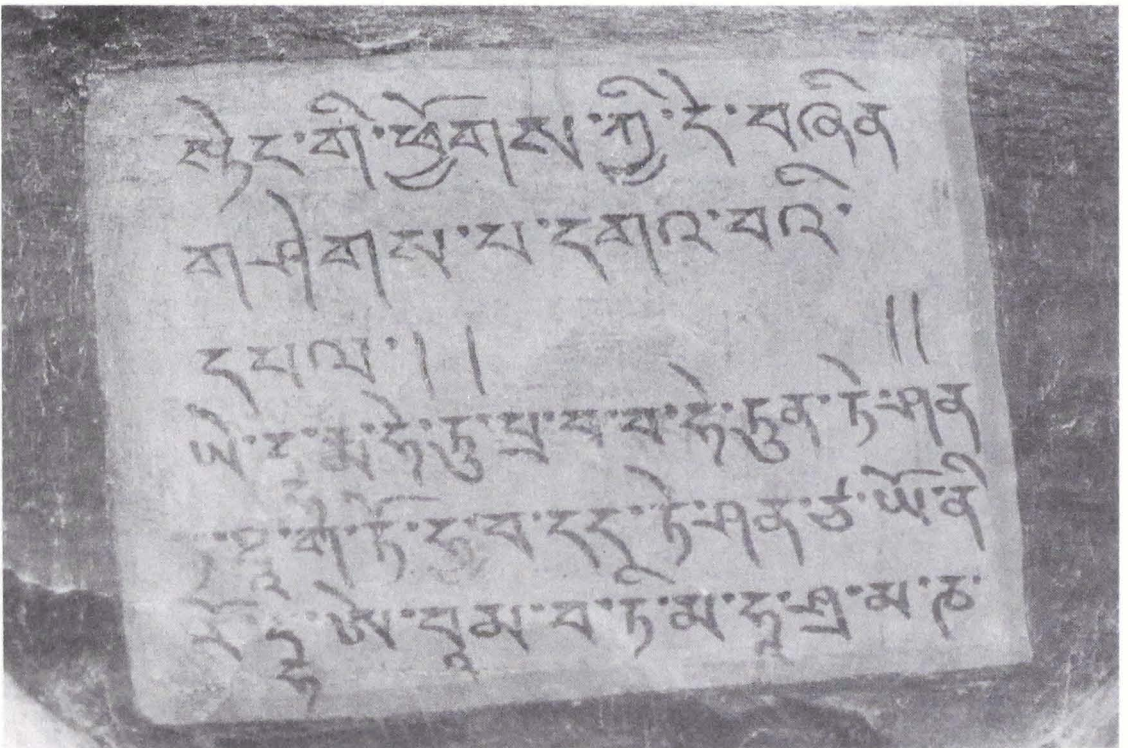 སྟེང་གི་ཕྱོགས་ཀྱི་དེ་བཞིན
གཤེགས་པ་དགའ་བའི་
དཔལ་།། །།
ཡེ་དྷ་མ་ཧེ་ཏུ་པྲ་བ་བ་ཧེ་ཏུན་ཏེ་ཤན
ཏ་ཐཱ་ག་ཏོ་ཧྱ་བ་དད་ཏེ་ཤན་ཙ་ཡོ་ནི
རོ་དྷ་ཨེ་བཱམ་བ་ཏི་མ་ཧཱ་ཤྲ་མ་ཎ་